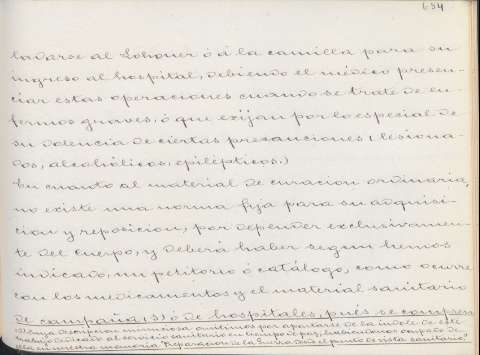 634
ladarse al Lohoner ó á la camilla para su
ingreso al hospital, debiendo el médico presen-
ciar estas operaciones cuando se trate de en-
fermos graves, ó que exijan por lo especial de
su dolencia de ciertas precauciones (lesiona-
dos, alcohólicos, epilépticos.)
En cuanto al material de curacion ordinaria,
no existe una norma fija para su adquisi-
cion y reposicion, por depender exclusivamen-
te del cuerpo, y deberá haber segun hemos
indicado, un petitorio ó catálogo, como ocurre
con los medicamentos y el material sanitario
de campaña (1) ó de hospitales, pués se compren
descripcion minuciosa omitimos por apartarse de la indole de este
trabajo dedicado al servicio sanitario en tiempo de paz, habiendonos ocupado de
ella en nuestra memoria "Reparacion de la Guerra desde el punto de vista sanitario"